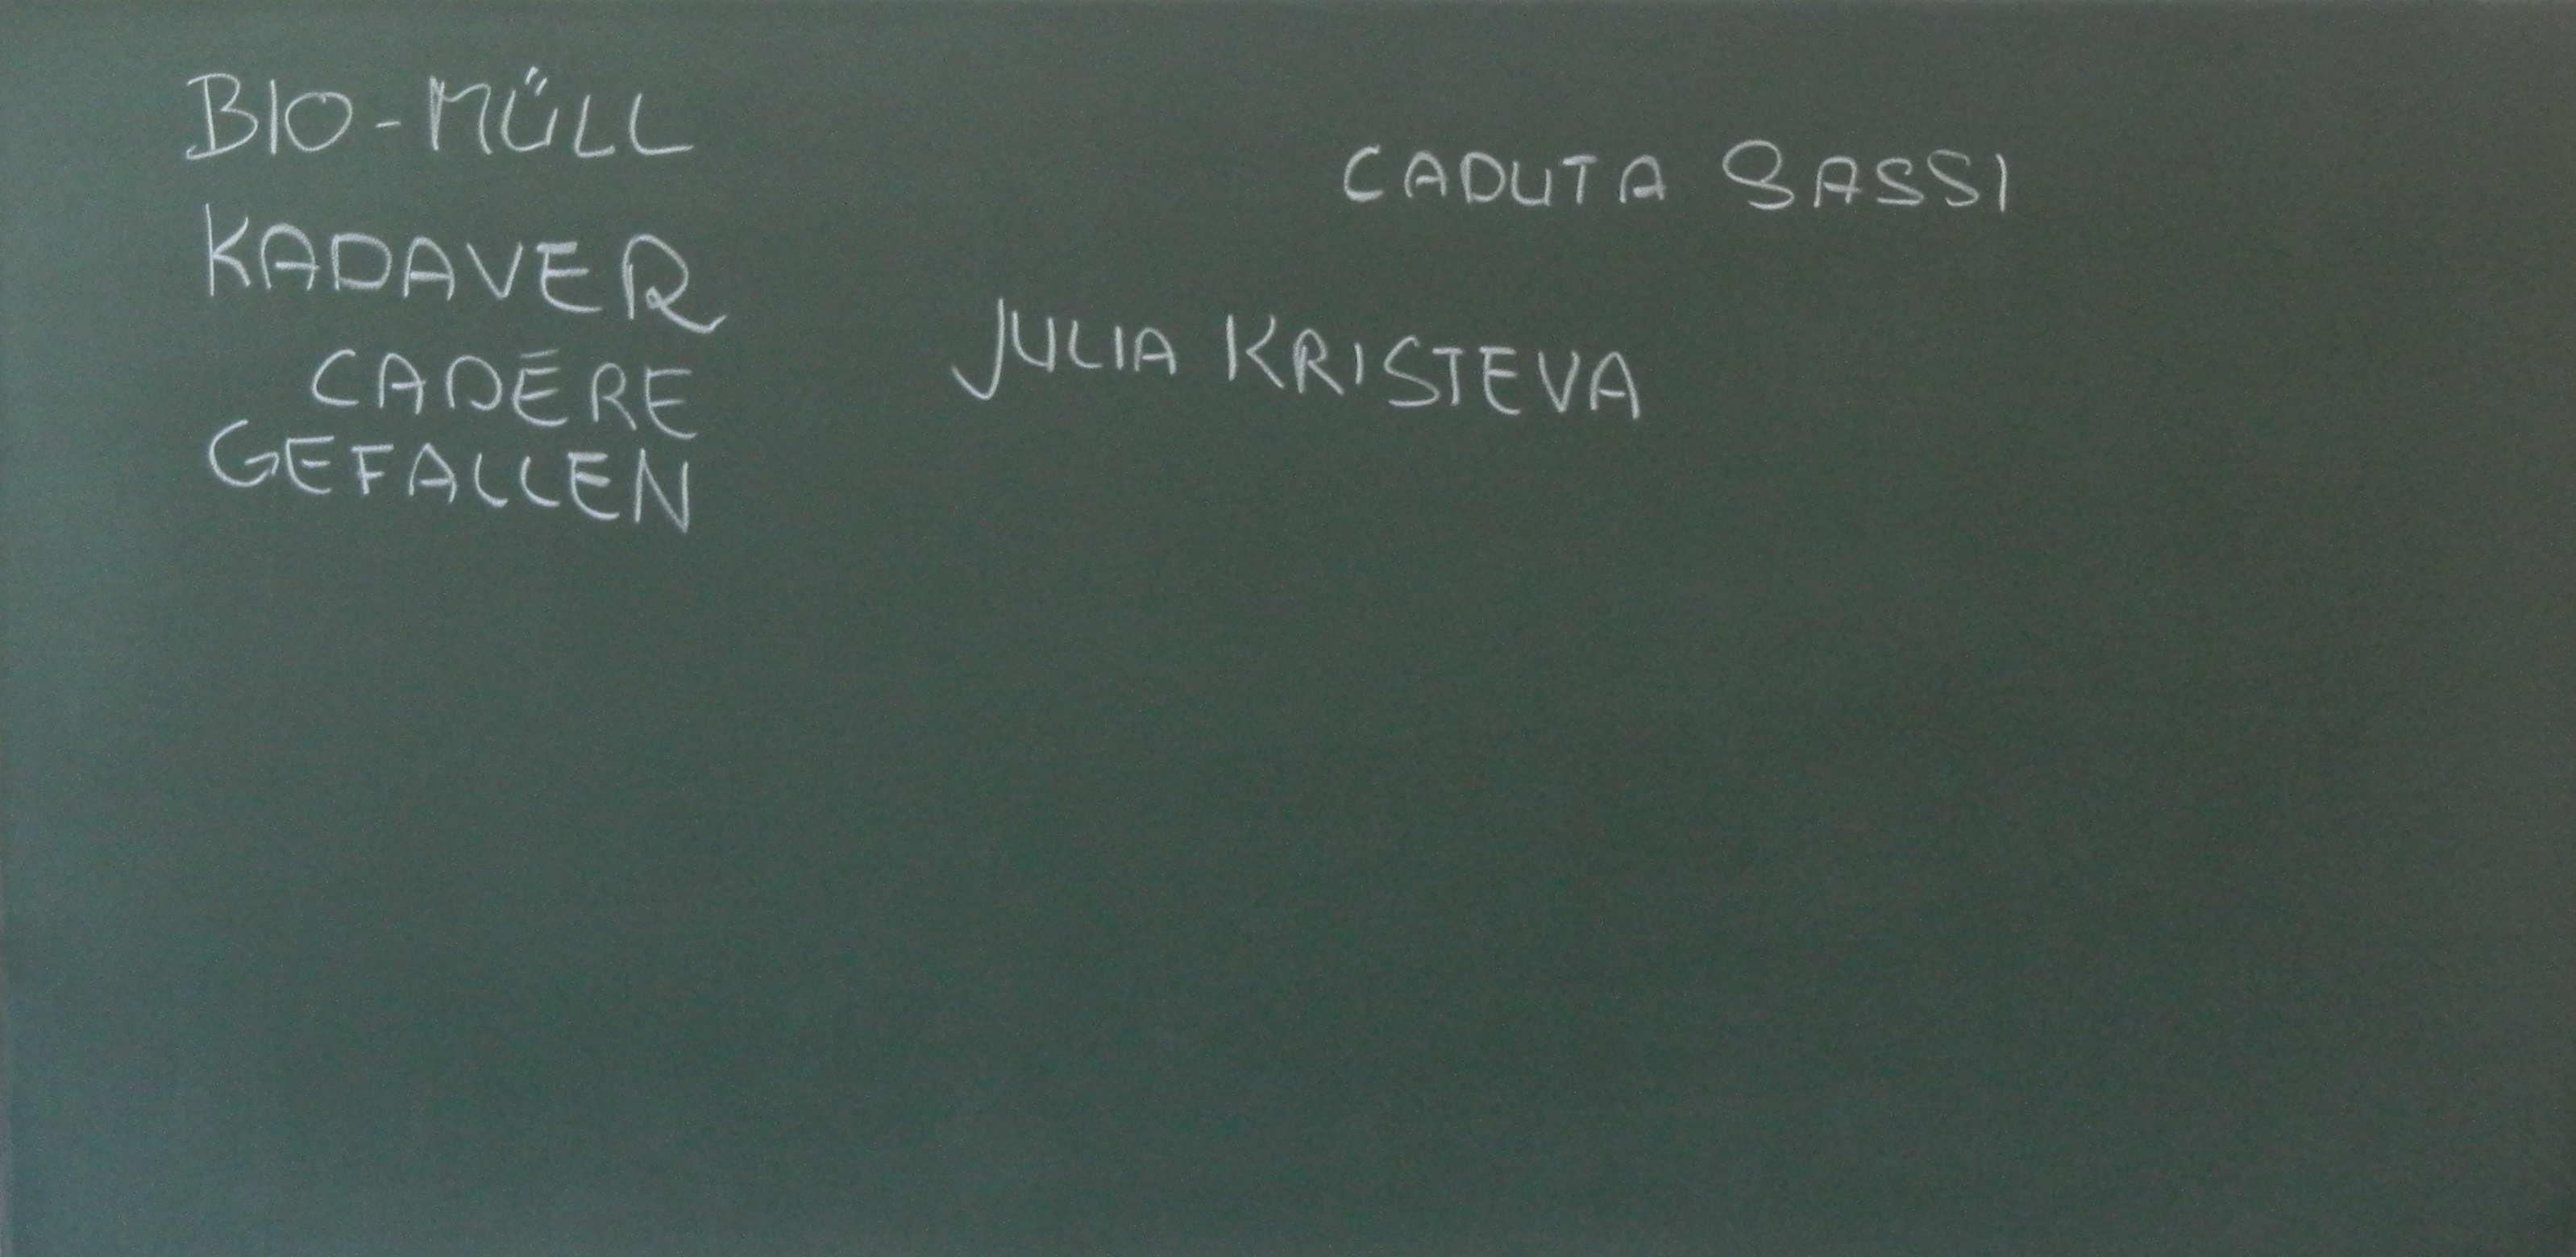 BIO-MÜLL
KADAVER
CADĒRE
GEFALLEN
CADUTA SASSI
JULIA KRISTEVA